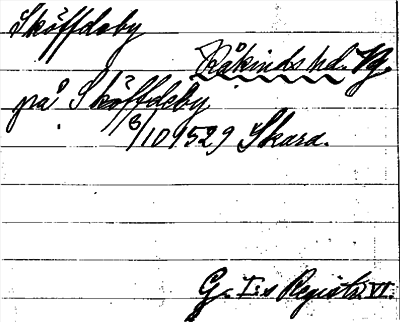 Sköffdeby
Kåkinds hd. Vg
på Sköffdeby
8/10 1529 Skara.
G. I:s Registr. VI.